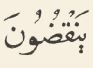 يَنْقُضُونَ